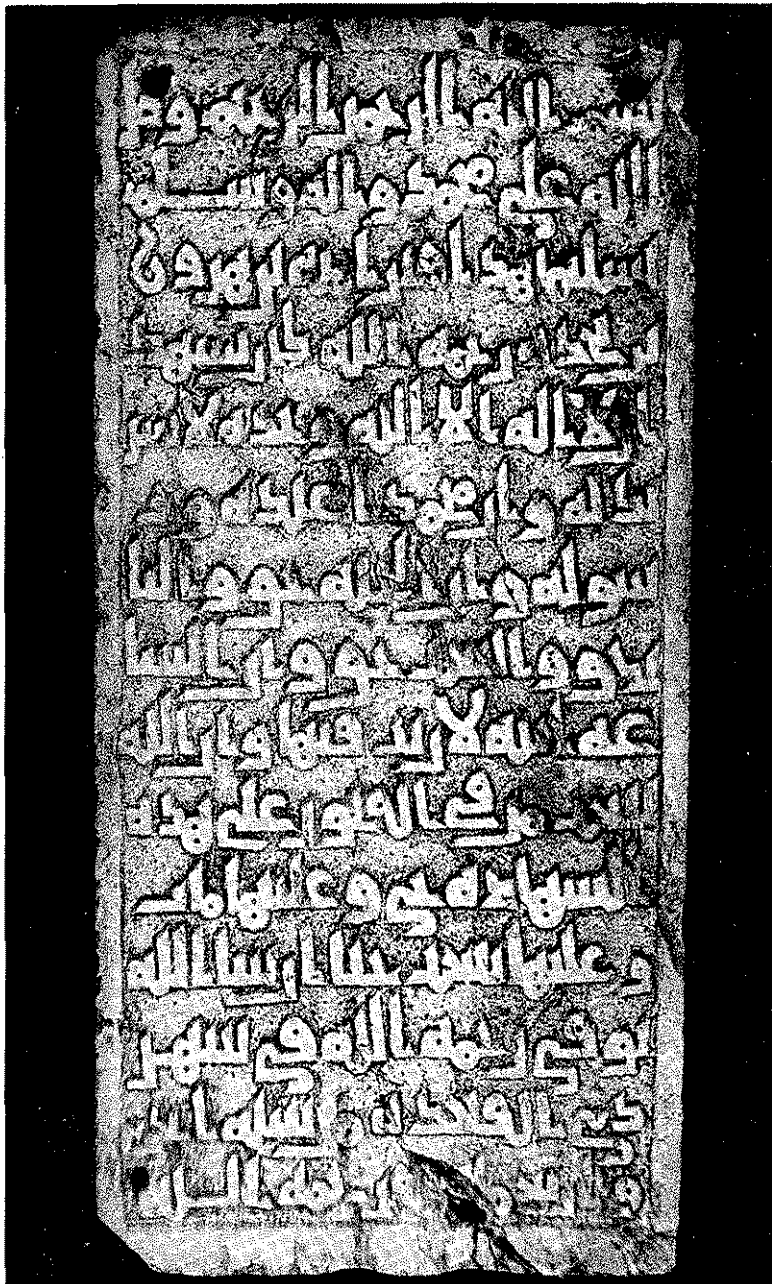 بسم الله الرحمن الرحيم وص
لى الله على محمد واله وسلم
تسليما هذا قبر هرون
بن رحمه الله كان يشهد
ان لا اله الا الله وحده لا شر
يك له وان محمدا عبده ور
سوله وان الجنة حق والنا
ر حق وا حق وان السا
عة اتية لا ريب فيها وان الله
يبعث من في القبور على هذه
الشهادة حيي وعليها مات
وعليها يبعث حيا ان شا الله
توفي رحمة الله في شهر
ذي القعدة من سنة
رحمة الله